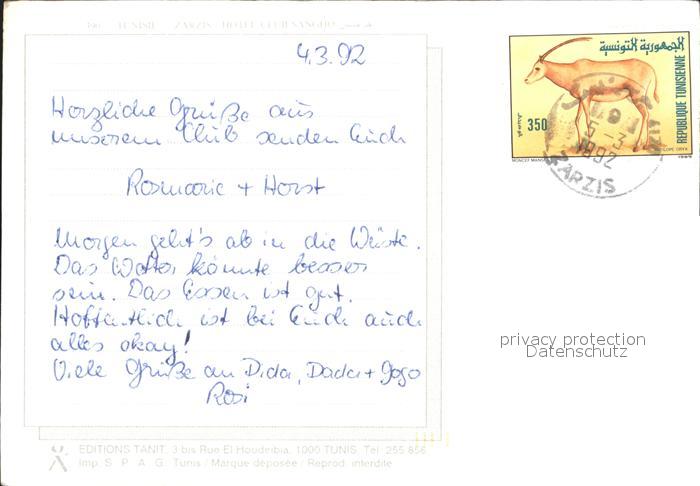 390 TUNISIE ZARZIS: HOTEL CLUB SANGHO
4.3.92
Herzliche Grüße aus
unserem Club senden Euch
Rosmarie + Horst
Morgen geht's ab in die Wüste.
Das Wetter könnte besser
sein. Das Essen ist gut.
Hoffentlich ist bei Euch auch
alles okay!
Viele Grüße an Dida, Dada + Gogo
Rosi
الجمهورية التونسية
REPUBLIQUE TUNISIENNE
350
5-3
1992
ZARZIS
privacy protection
Datenschutz
EDITIONS TANIT, 3 bis Rue El Houdeibia, 1000 TUNIS. Tél. 255 856
Imp. S. P. A. G. Tunis / Marque déposée / Reprod. interdite